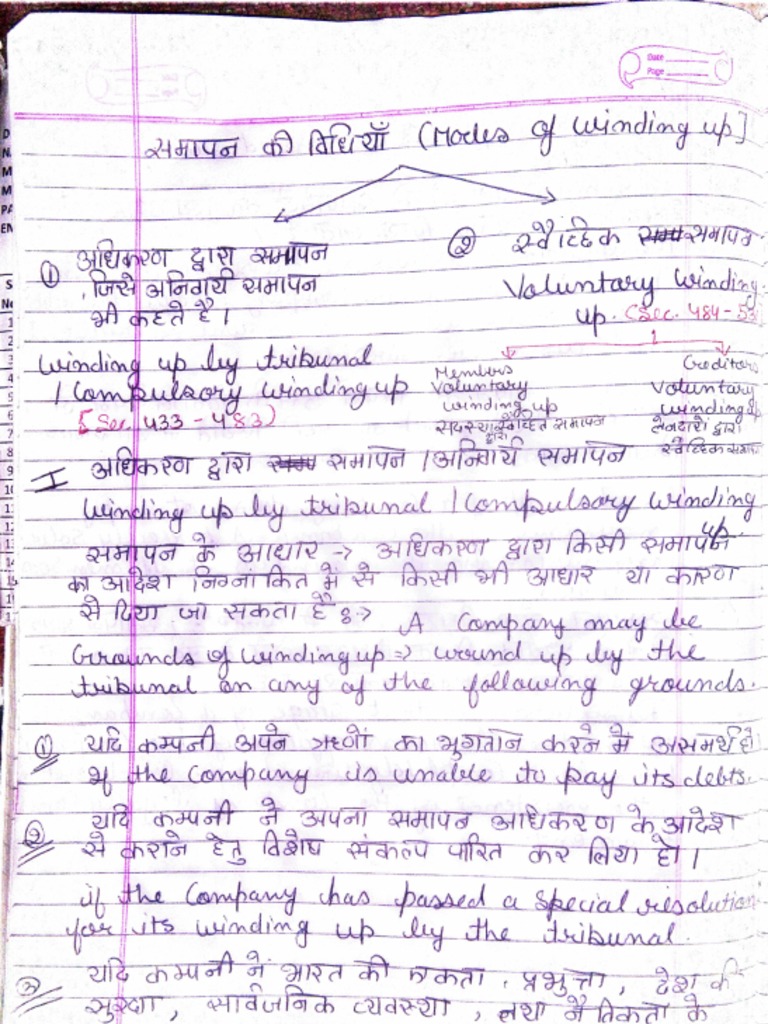 Date
Page
समापन की विधियाँ (Modes of winding up]
① अधिकरण द्वारा समापन
जिसे अनिवार्य समापन
भी कहते है।
winding up by tribunal
/ Compulsory winding up
[Sec. 433 - 483)
② स्वैच्छिक समापन
Voluntary winding
up. (Sec. 484 - 53
Members
Voluntary
winding up
सदस्यो द्वारा स्वैच्छिक समापन
Creditors
Voluntary
winding up
लेनदारो द्वारा
स्वैच्छिक समापन
I अधिकरण द्वारा समापन / अनिवार्य समापन
winding up by tribunal / Compulsory winding up
समापन के आधार → अधिकरण द्वारा किसी समापन
का आदेश निम्नांकित में से किसी भी आधार या कारण
से दिया जा सकता है :→ A Company may be
Grounds of winding up ⇒ wound up by the
tribunal on any of the following grounds.
① यदि कम्पनी अपने ऋणों का भुगतान करने में असमर्थ हो
if the Company is unable to pay its debts.
② यदि कम्पनी ने अपना समापन अधिकरण के आदेश
से कराने हेतु विशेष संकल्प पारित कर लिया हो।
if the Company has passed a special resolution
for its winding up by the tribunal.
③ यदि कम्पनी नें भारत की एकता, प्रभुत्ता, देश की
सुरक्षा, सार्वजनिक व्यवस्था, तथा नैतिकता के